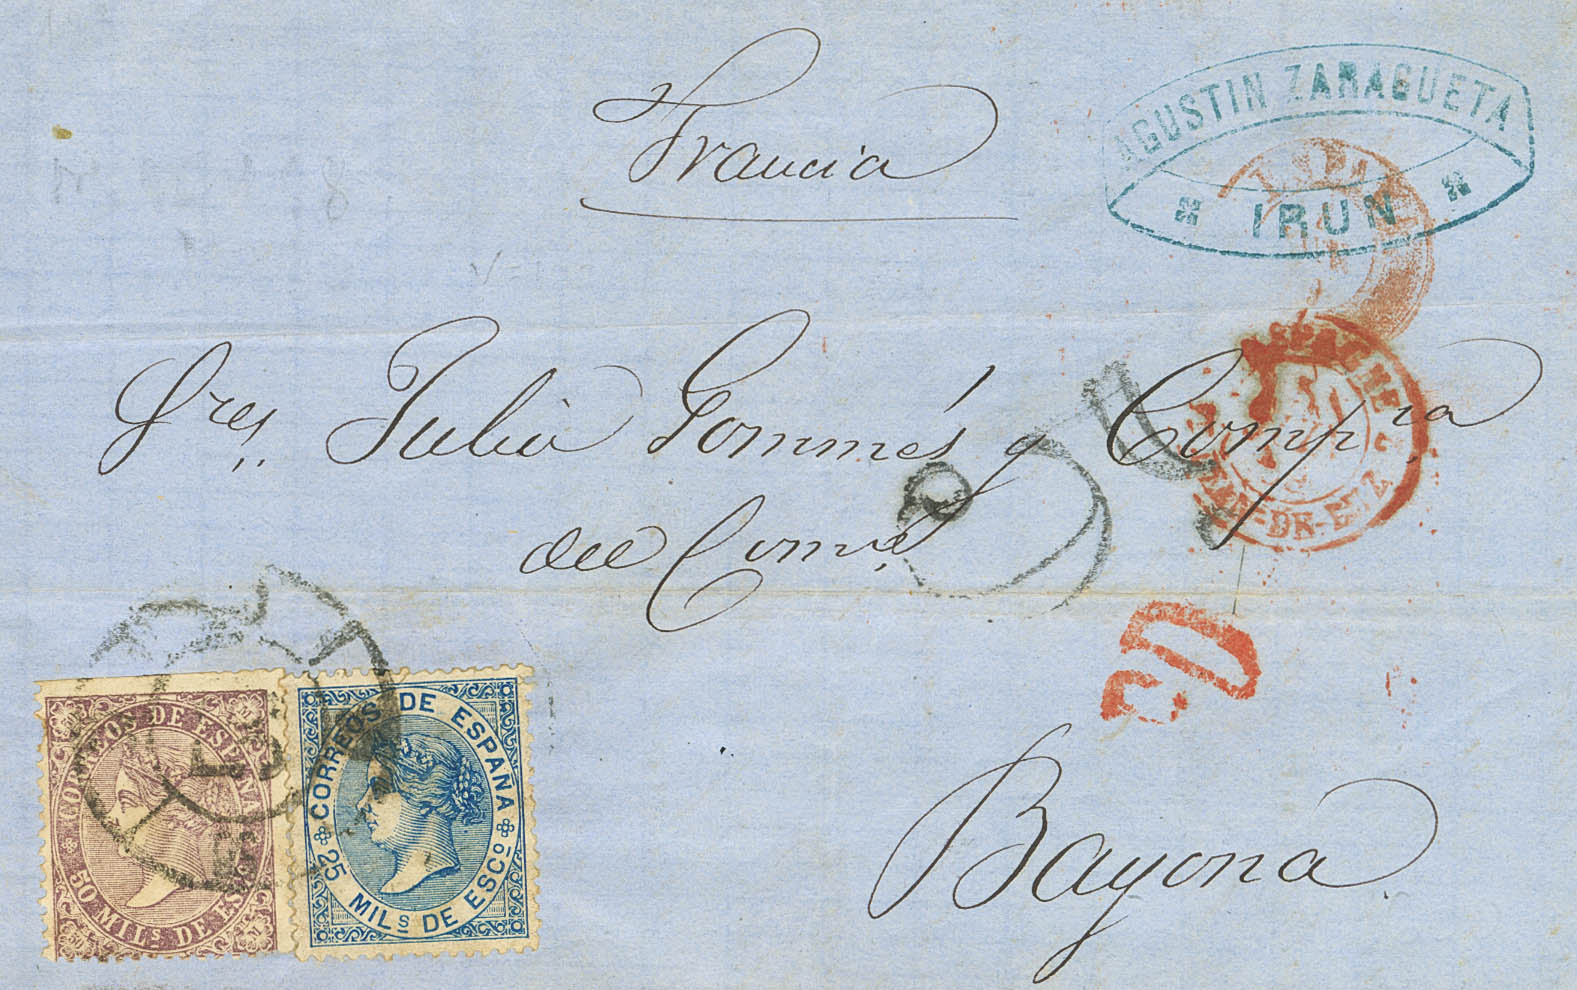 Francia
AGUSTIN ZARAGUETA
IRUN
Sres. Julio Gommés y Comp.ia
del Comº
Bayona
CORREOS DE ESPAÑA
50 MILs DE ESCo
CORREOS DE ESPAÑA
25 MILs DE ESCo
ESPAGNE
DE-LUZ